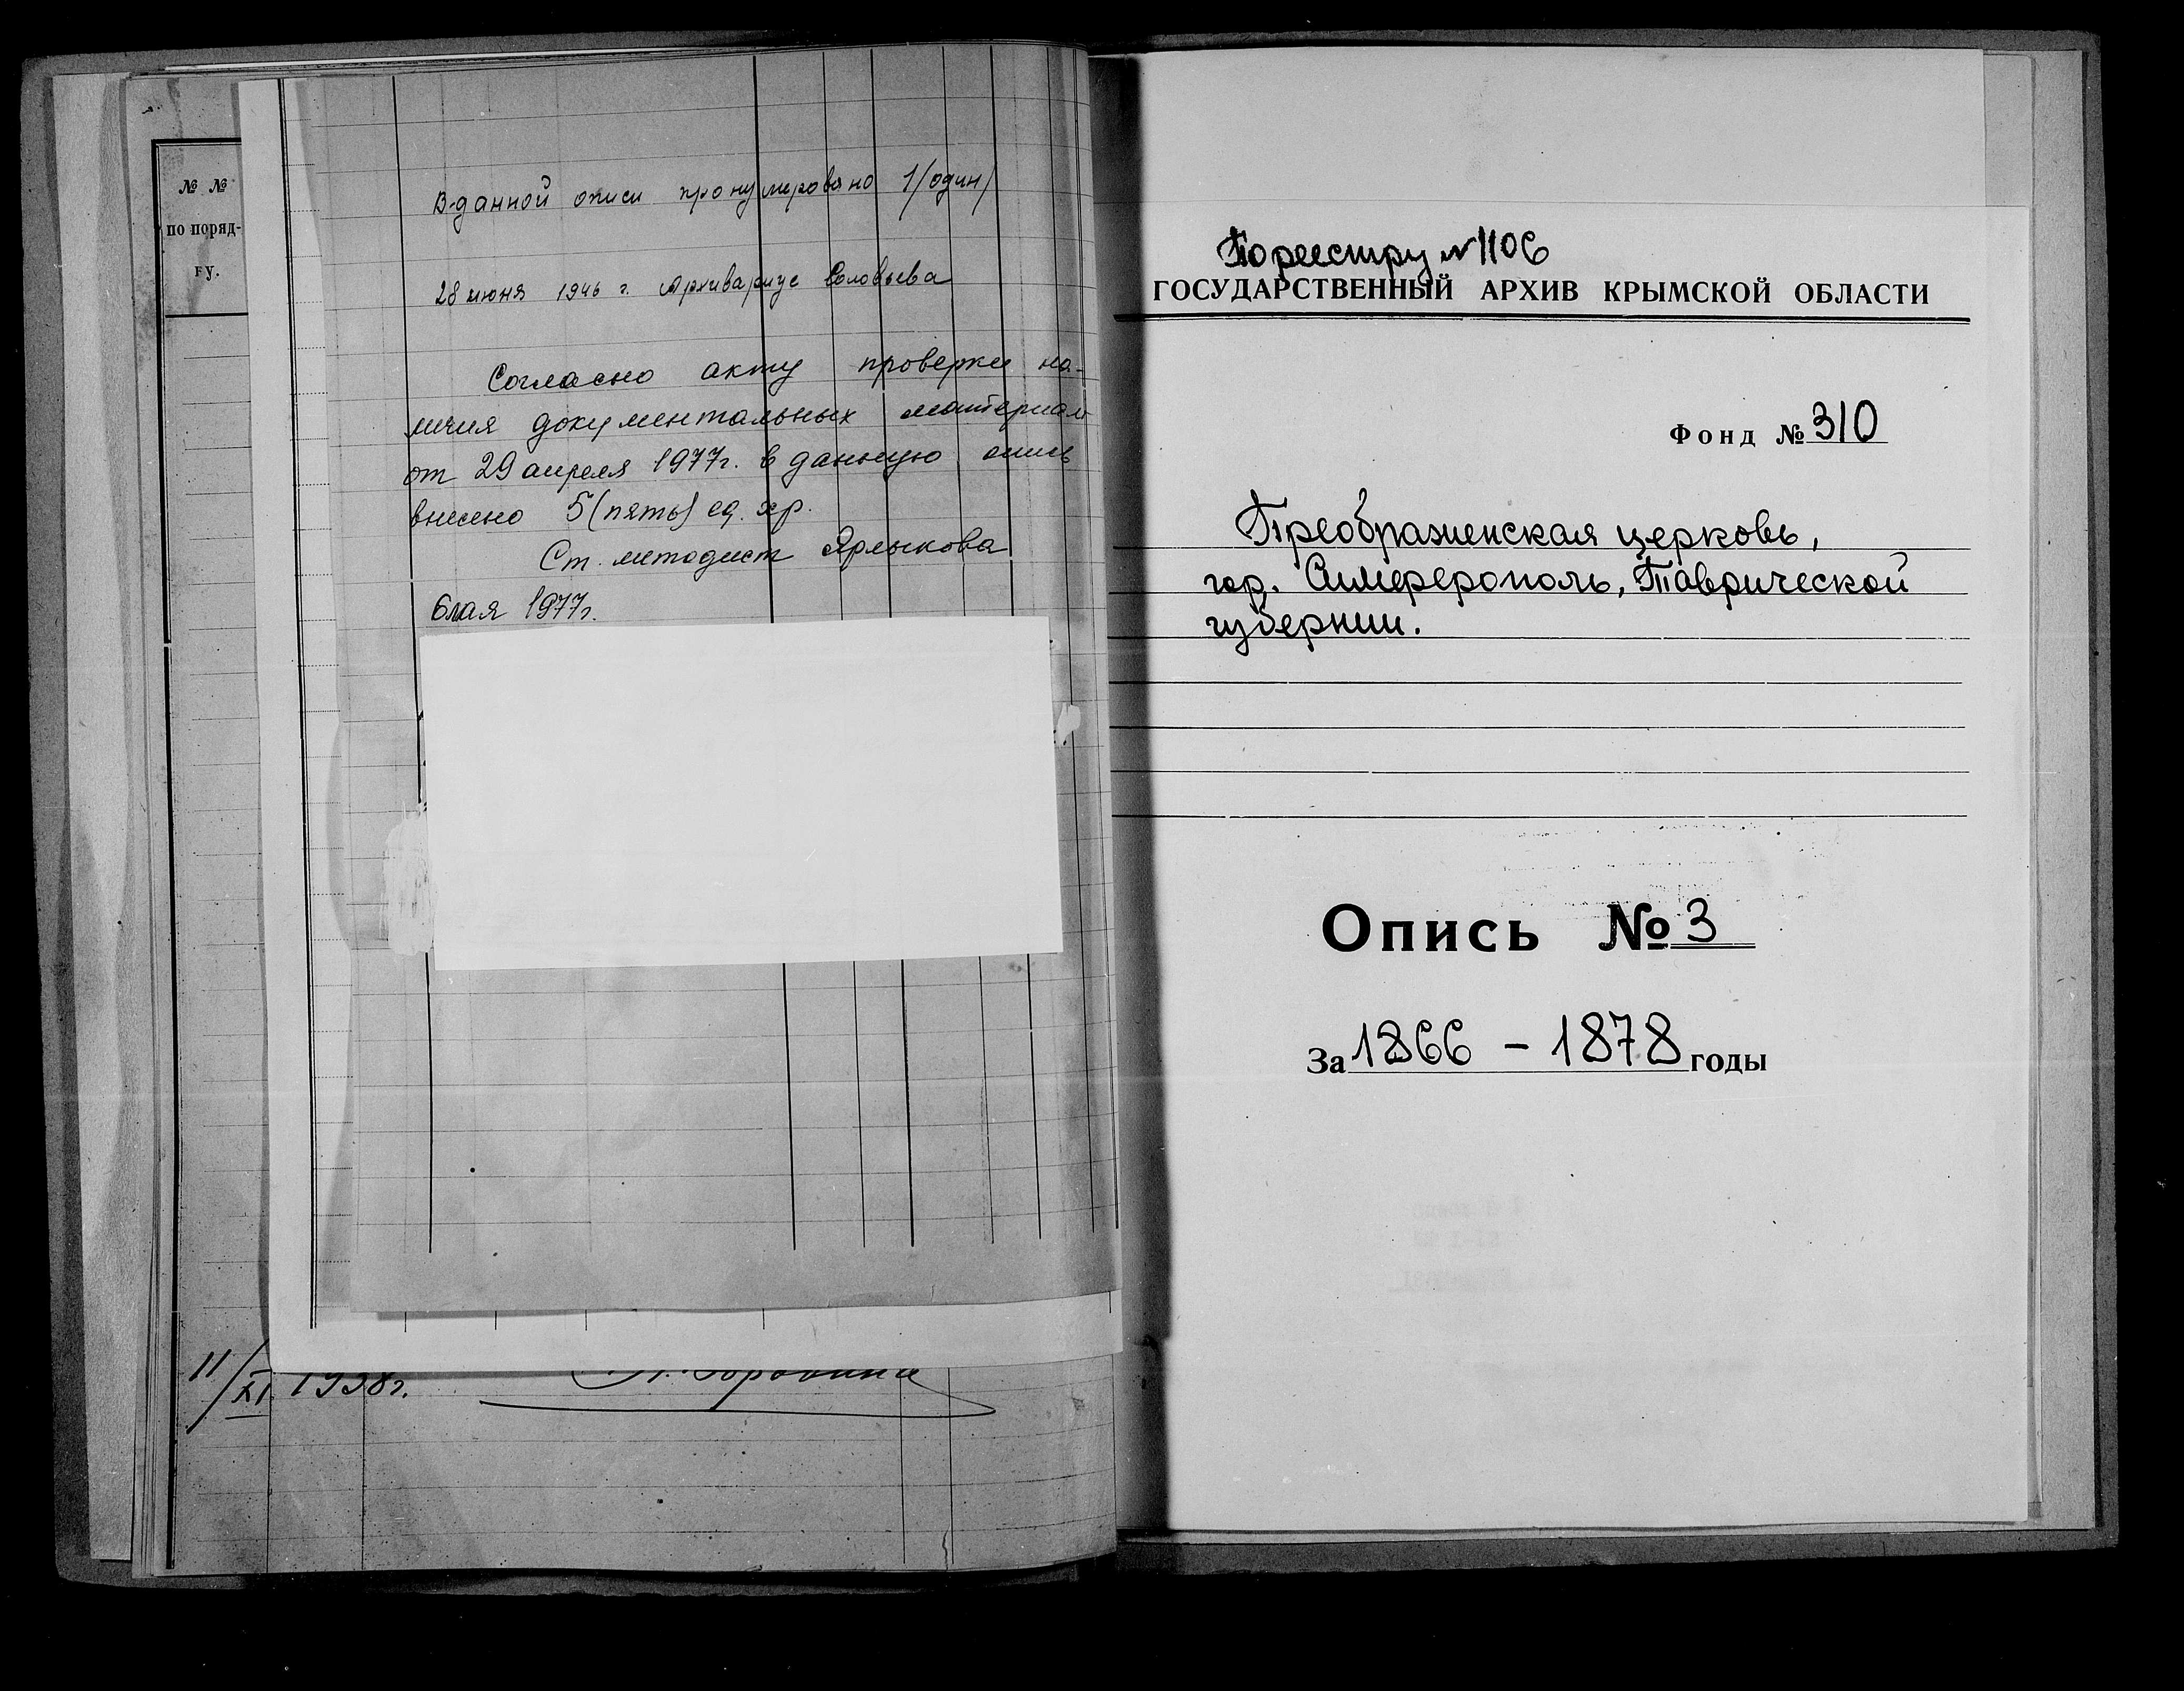 № №
по поряд-
ку.
В данной описи пронумеровано 1/один/
28 июня 1946 г. Архивариус Соловьева
Согласно акту проверки на-
личия документальных материал
от 29 апреля 1977г. в данную опись
внесено 5 (пять) ед. хр.
Ст. методист Ярлыкова
6 мая 1977г.
11/XI 1938г.
По реестру № 1106
ГОСУДАРСТВЕННЫЙ АРХИВ КРЫМСКОЙ ОБЛАСТИ
Фонд № 310
Преображенская церковь,
гор. Симферополь, Таврической
губернии.
Опись № 3
За 1866 – 1878 годы